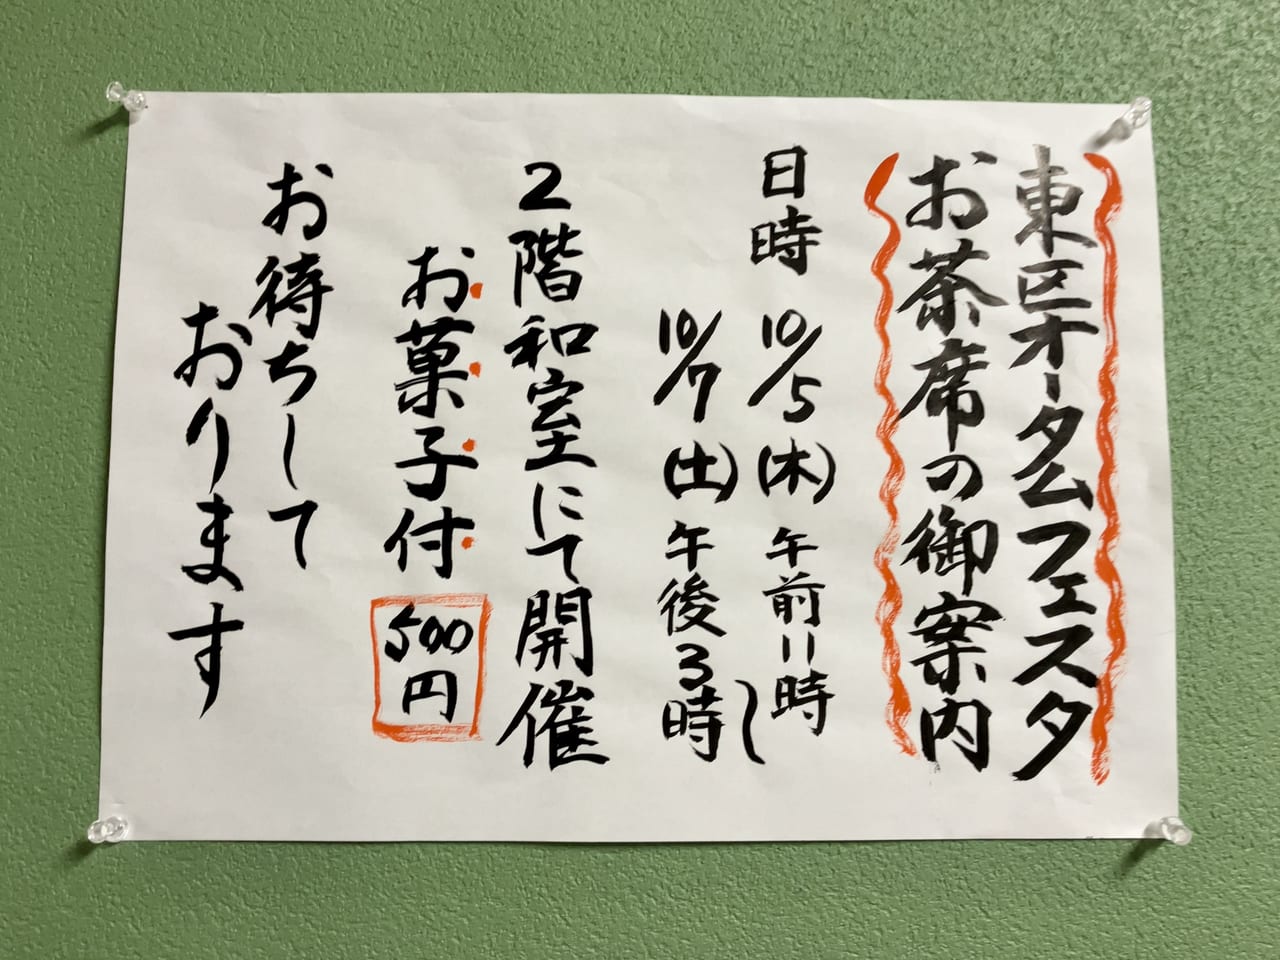 東区オータムフェスタ
お茶席の御案内
日時 10/5(木)午前11時〜
10/7(土)午後3時
2階和室にて開催
お菓子付 500円
お待ちして
おります